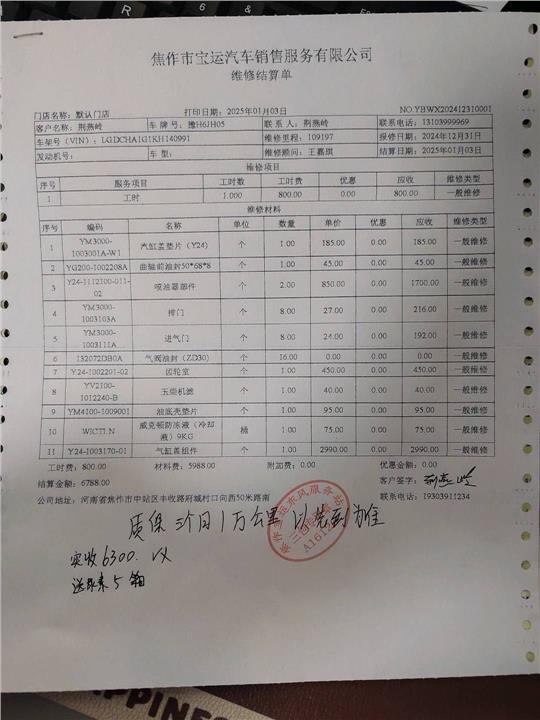 焦作市宝运汽车销售服务有限公司
维修结算单
门店名称：默认门店 打印日期：2025年01月03日 NO.YBWX202412310001
客户名称：荆燕岭 车 牌 号：豫H6JH05 联 系 人：荆燕岭 联系电话：13103999969
车架号（VIN）：LGDCHA1G1KH140991 维修里程：109197 报修日期：2024年12月31日
发动机号： 车 型： 维修顾问：王嘉琪 结算日期：2025年01月03日
维修项目
序号 服务项目 工时数 工时费 优惠 应收 维修类型
1 工时 1.000 800.00 0.00 800.00 一般维修
维修材料
序号 编码 名称 单位 数量 单价 优惠 应收 维修类型
1 YM3000-1003001A-W1 汽缸盖垫片（Y24） 个 1.00 185.00 0.00 185.00 一般维修
2 YG200-1002208A 曲轴前油封50*68*8 个 1.00 45.00 0.00 45.00 一般维修
3 Y24-1112100-011-02 喷油器部件 个 2.00 850.00 0.00 1700.00 一般维修
4 YM3000-1003103A 排门 个 8.00 27.00 0.00 216.00 一般维修
5 YM3000-1003111A 进气门 个 8.00 24.00 0.00 192.00 一般维修
6 132072DB0A 气阀油封（ZD30） 个 16.00 0.00 0.00 0.00 一般维修
7 Y24-1002201-02 齿轮室 个 1.00 450.00 0.00 450.00 一般维修
8 YV2100-1012240-B 玉柴机滤 个 1.00 40.00 0.00 40.00 一般维修
9 YM4100-1009001 油底壳垫片 个 1.00 95.00 0.00 95.00 一般维修
10 WJCTLN 威克顿防冻液（冷却液）9KG 桶 1.00 75.00 0.00 75.00 一般维修
11 Y24-1003170-01 气缸盖组件 个 1.00 2990.00 0.00 2990.00 一般维修
工时费：800.00 材料费：5988.00 附加费：0.00 优惠金额：0.00
结算金额：6788.00 客户签字：荆燕岭
公司地址：河南省焦作市中站区丰收路府城村口向西50米路南 联系电话：19303911234
质保 三个月 1万公里 以先到为准
实收6300.
送尿素5箱